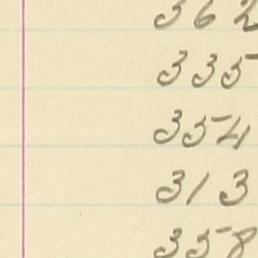 362
335
354
313
358